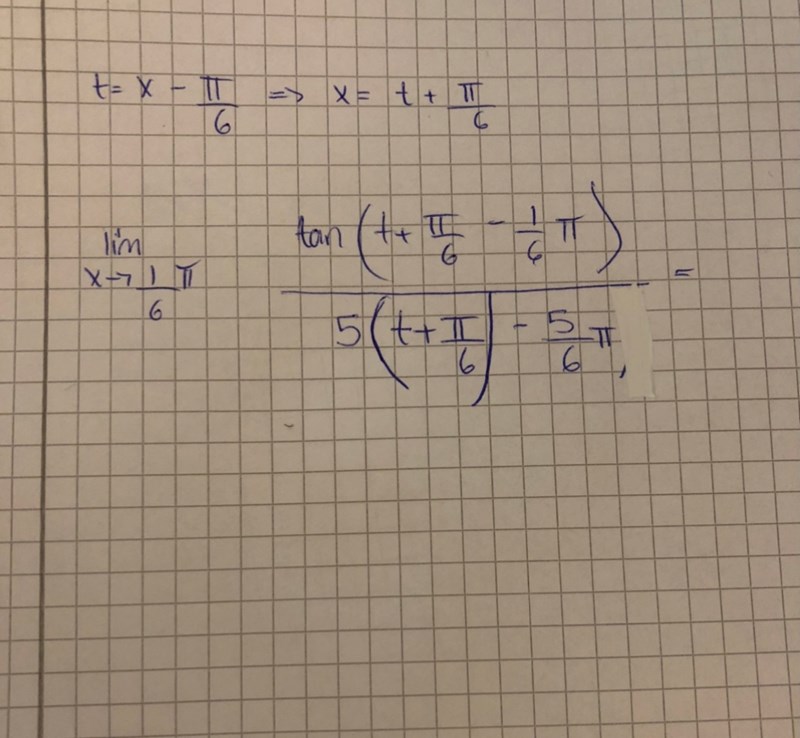 t = x - π/6 => x = t + π/6
lim x→1/6 π tan(t + π/6 - 1/6 π) / 5(t + π/6) - 5/6 π, =